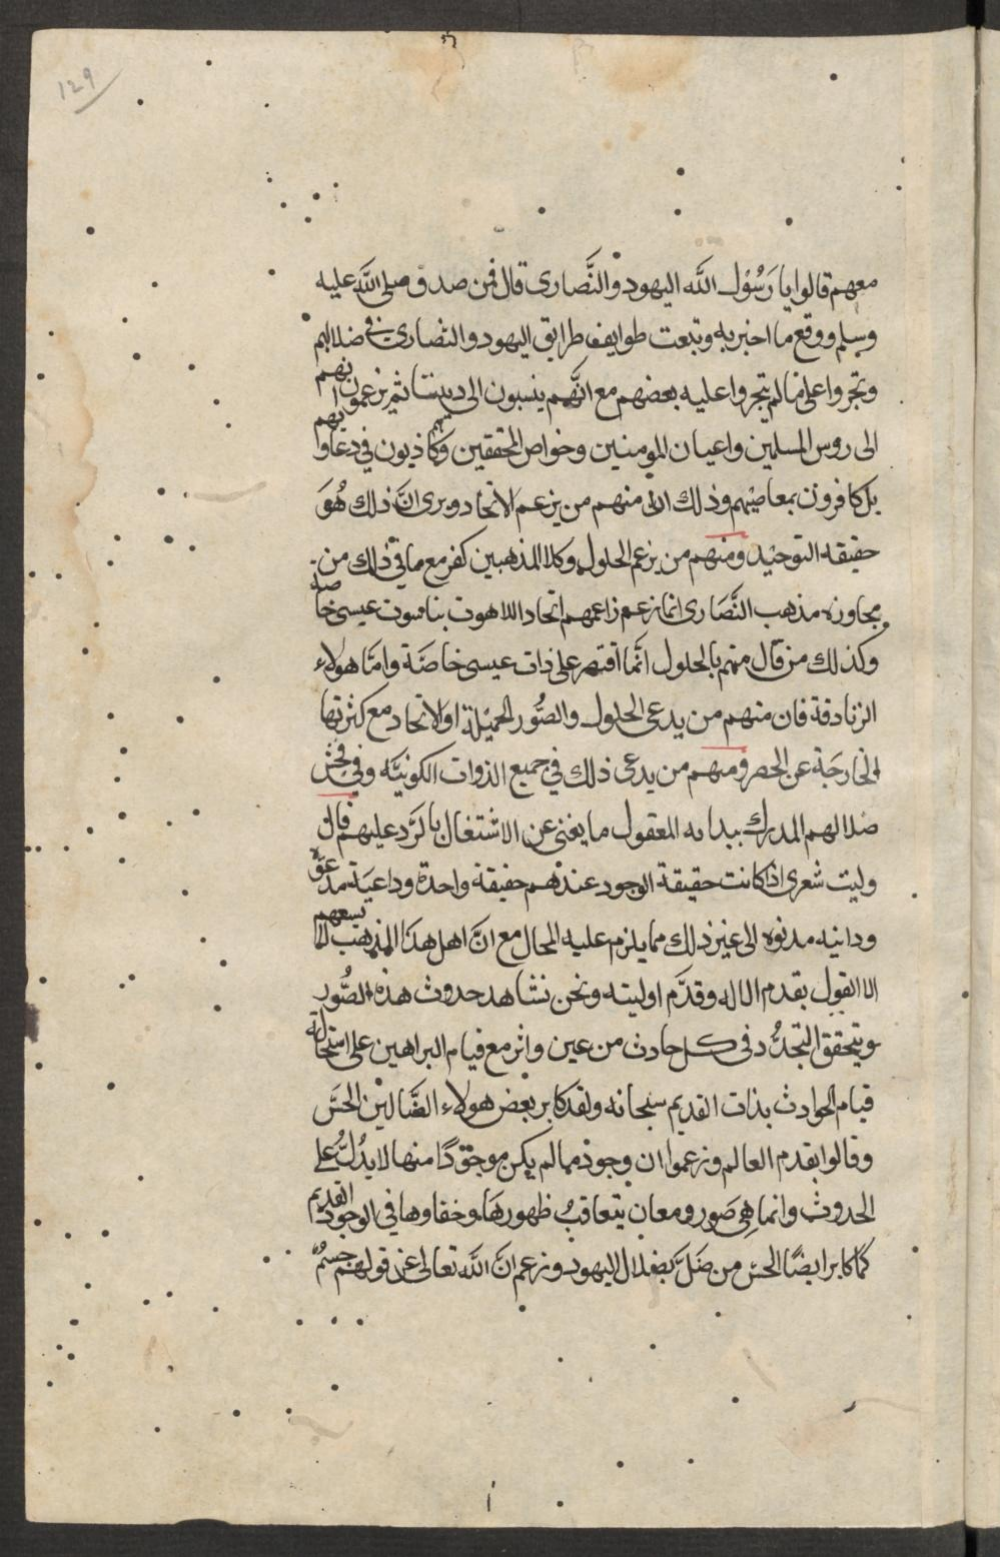 129
معهم قالوا يا رَسُول الله اليهود والنَّصارى قال فمن صدق صلى الله عليه
وسلم ووقع ما اخبر به وتبعت طوايف طرايق اليهود والنصارى في ضلالهم
وتجروا على ما لم يتجروا عليه بعضهم مع انَّهم ينسبون الى ديننا ثم يزعمون انهم
الى روس المسلمين واعيان المومنين وخواص المحققين وكاذبون في دعاويهم
بل كافرون بمعاضيهم وذلك ان منهم من يزعم الاتحاد ويرى انَّ ذلك هُوَ
حقيقه التوحيد ومنهم من يزعم الحلول وكلا المذهبين كفر مع ما في ذلك من
مجاوزه مذهب النَّصَارى انما زعم زاعمهم اتحاد اللاهوت بناسوت عيسى خاصه
وكذلك من قال منهم بالحلول انَّما اقتصر على ذات عيسى خاصَة وامَّا هولاء
الزنادقة فان منهم من يدعى الحلول والصُّور الجميلة او الاتحاد مع كثرتها
الخارجَة عن الحصر ومنهم من يدعى ذلك في جميع الذوات الكونيَّه وفي فحش
ضلالهم المدرك ببدايه المعقول ما يغنى عن الاشتغال بالرَّد عليهم قال
وليت شعرى اذا كانت حقيقة الوجود عندهم حقيقة واحدة وداعيَة
ودانيه مدنوه الى غير ذلك مما يلزم عليه المحال مع انَّ اهل هذا المذهب لا يسعهم
الا القول بقدم الاله وقدَّم اوليته ونحن نشاهد حدوث هذه الصُّور
ويتحقق التجدُّد فى كل حادث من عين واثر مع قيام البراهين على استحالة
قيام الحوادث بذات القديم سبحانه ولقد كابر بعض هولاء الضَّالين الحسَّ
وقالوا بقدم العالم وزعموا ان وجود ما لم يكن موجودًا منها لا يدُلُّ على
الحدوث وانما هِي صَور ومعان يتعاقبُ ظهورهَا وخفاوها في الوجود القديم
كما كابر ايضًا الحسَّ من ضَلَّ بضلال اليهود وزعم انَّ الله تعالى عن قولهم جسمٌ